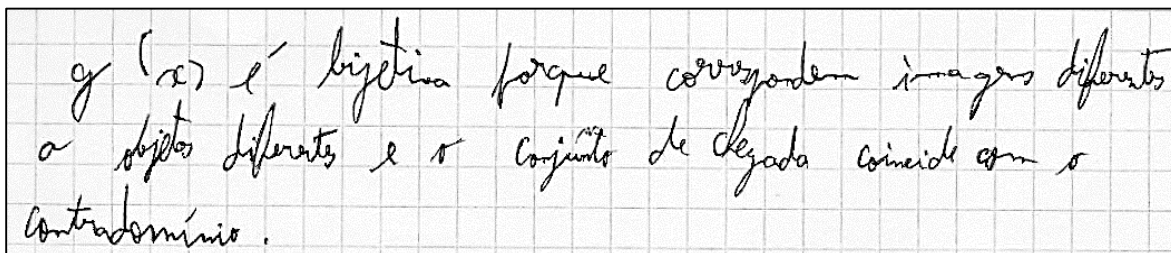 g (x) é bijetiva porque correspondem imagens diferentes
a objetos diferentes e o conjunto de chegada coincide com o
contradomínio.